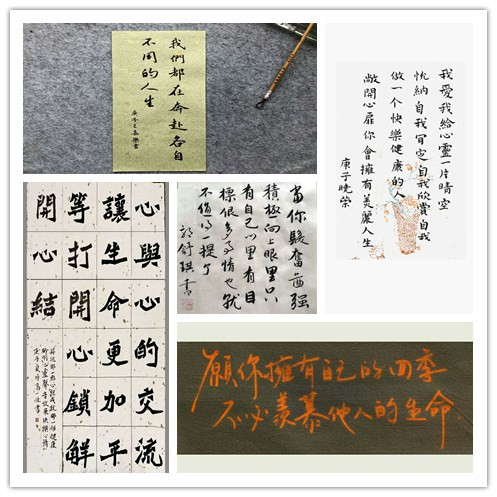 我們都在奔赴各自
不同的人生
我愛我給心靈一片晴空
悦纳自我肯定自我欣賞自我
做一个快樂健康的人
敞開心扉你會擁有美麗人生
庚子晓荣
心與心的交流
讓生命更加平
等打開心鎖解
開心結
當你發奮啚强
積極向上眼里只
有自己心里有目
標很多事情也就
不值得一提了
郭舒琪書
願你擁有自己的四季
不必羨慕他人的生命